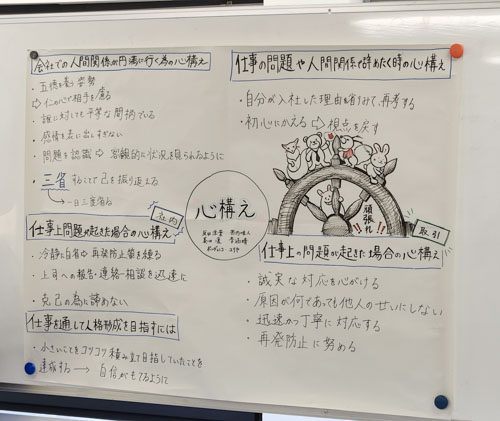 会社での人間関係が円満に行く為の心構え
・五徳を養う姿勢
⇨仁の心で相手を慮る
・誰に対しても平等な間柄でいる
・感情を表に出しすぎない
・問題を認識 ⇨ 客観的に状況を見られるように
・三省することで己を振り返える
→一日三度省る
社内
仕事上問題が起きた場合の心構え
・冷静に自省⇨再発防止策を練る
・上司への報告・連絡・相談を迅速に
・克己の為に諦めない
仕事を通して人格形成を目指すには
・小さいことをコツコツ積み立て目指していたことを
達成する → 自信がもてるように
心構え
仕事の問題や人間関係で辞めたく時の心構え
・自分が入社した理由を省りみて、再考する
・初心にかえる ⇨ 視点を戻す
頑張れ!!
取引
仕事上の問題が起きた場合の心構え
・誠実な対応を心がける
・原因が何であっても他人のせいにしない
・迅速かつ丁寧に対応する
・再発防止に努める